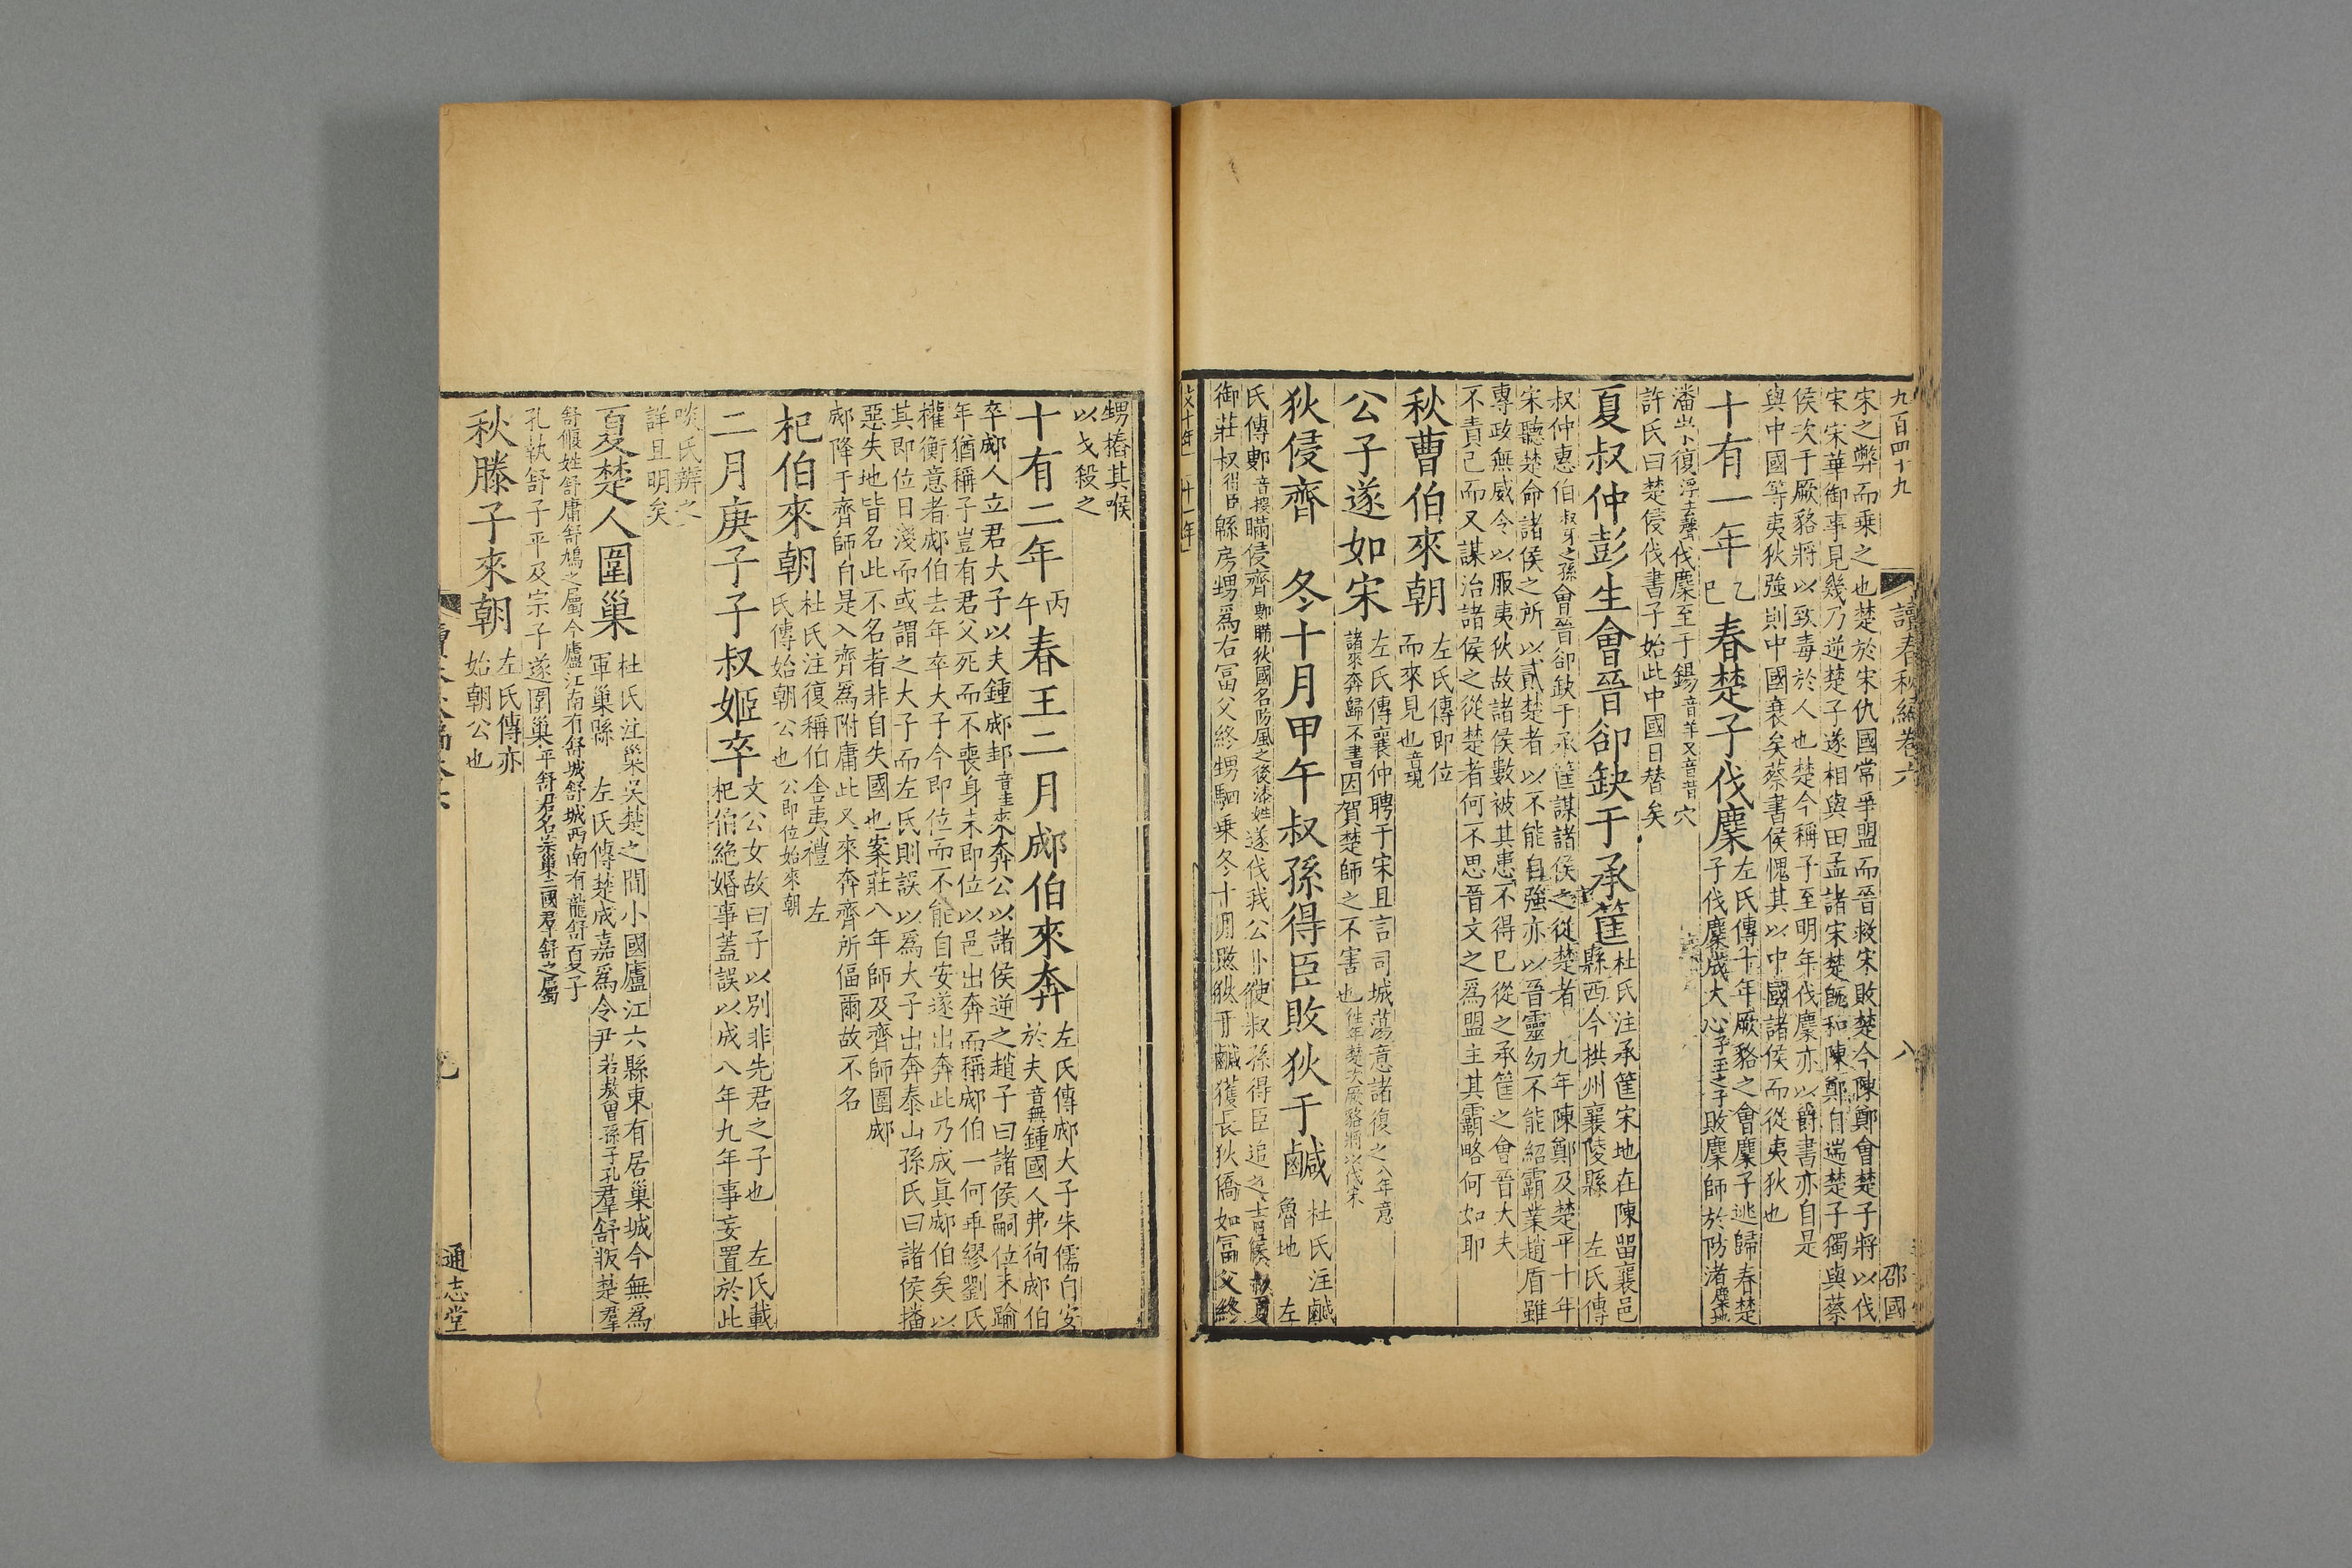 九百四十九 讀春秋編卷六 八 邵國
宋之弊而乗之也楚於宋仇國常爭盟而晉救宋敗楚今陳鄭會楚子將以伐
宋宋華御事見幾乃逆楚子遂相與田孟諸宋楚旣和陳鄭自遄楚子獨與蔡
侯次于厥貉將以致毒於人也楚今稱子至明年伐麇亦以爵書亦自是
與中國等夷狄強則中國衰矣蔡書侯愧其以中國諸侯而從夷狄也
十有一年 乙巳 春楚子伐麇 左氏傳十年厥貉之會麇子逃歸春楚
子伐麇成大心子玉之子敗麇師於防渚麇地
潘崇復浮去聲伐麇至于錫音羊又音昔穴
許氏曰楚侵伐書子始此中國日替矣
夏叔仲彭生會晉郤缺于承筐 杜氏注承筐宋地在陳留襄邑
縣西今拱州襄陵縣 左氏傳
叔仲惠伯叔牙之孫會晉郤缺于承筐謀諸侯之從楚者 九年陳鄭及楚平十年
宋聽楚命諸侯之所以貳楚者以不能自強亦以晉靈幼不能紹霸業趙盾雖
專政無威令以服夷狄故諸侯數被其患不得已從之承筐之會晉大夫
不責己而又謀治諸侯之從楚者何不思晉文之爲盟主其霸略何如耶
秋曹伯來朝 左氏傳即位
而來見也音現
公子遂如宋 左氏傳襄仲聘于宋且言司城蕩意諸復之八年意
諸來奔歸不書因賀楚師之不害也往年楚次厥貉將以伐宋
狄侵齊 冬十月甲午叔孫得臣敗狄于鹹 杜氏注鹹
魯地 左
氏傳鄋音搜瞞侵齊鄋瞞狄國名防風之後漆姓遂伐我公卜使叔孫得臣追之吉侯叔夏
御莊叔得臣緜房甥爲右富父終甥駟乗冬十月敗狄于鹹獲長狄僑如富父終
甥摏其喉
以戈殺之
十有二年 丙午 春王二月郕伯來奔 左氏傳郕大子朱儒自安
於夫音無鍾國人弗徇郕伯
卒郕人立君大子以夫鍾郕邽音圭來奔公以諸侯逆之趙子曰諸侯嗣位未踰
年猶稱子豈有君父死而不喪身未即位以邑出奔而稱郕伯一何乖繆劉氏
權衡意者郕伯去年卒大子今即位而不能自安遂出奔此乃成眞郕伯矣以
其即位日淺而或謂之大子而左氏則誤以爲大子出奔泰山孫氏曰諸侯播
惡失地皆名此不名者非自失國也案莊八年師及齊師圍郕
郕降于齊師自是入齊爲附庸此又來奔齊所偪爾故不名
杞伯來朝 杜氏注復稱伯舍夷禮 左
氏傳始朝公也公即位始來朝
二月庚子子叔姬卒 文公女故曰子以別非先君之子也 左氏載
杞伯絶婚事蓋誤以成八年九年事妄置於此
啖氏辯之
詳且明矣
夏楚人圍巢 杜氏注巢吳楚之間小國廬江六縣東有居巢城今無爲
軍巢縣 左氏傳楚成嘉爲令尹若敖曾孫子孔羣舒叛楚羣
舒偃姓舒庸舒鳩之屬今廬江南有舒城舒城西南有龍舒夏子
孔執舒子平及宗子遂圍巢平舒君名宗巢二國羣舒之屬
秋滕子來朝 左氏傳亦
始朝公也
通志堂